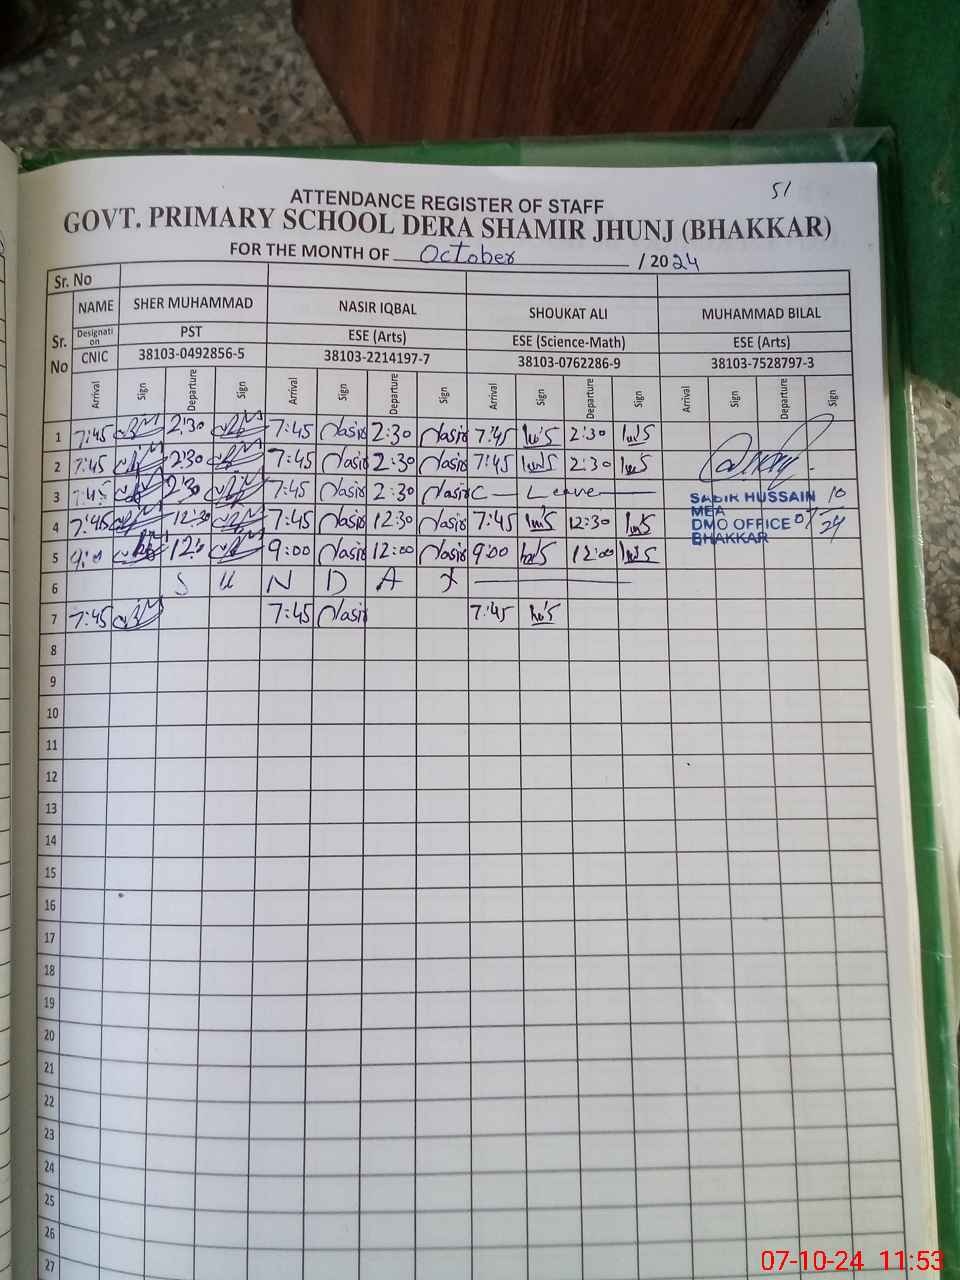 51
ATTENDANCE REGISTER OF STAFF
GOVT. PRIMARY SCHOOL DERA SHAMIR JHUNJ (BHAKKAR)
FOR THE MONTH OF October / 2024
Sr. No
Sr. No NAME SHER MUHAMMAD NASIR IQBAL SHOUKAT ALI MUHAMMAD BILAL
Designation PST ESE (Arts) ESE (Science-Math) ESE (Arts)
CNIC 38103-0492856-5 38103-2214197-7 38103-0762286-9 38103-7528797-3
Arrival Sign Departure Sign Arrival Sign Departure Sign Arrival Sign Departure Sign Arrival Sign Departure Sign
1 7:45 2:30 7:45 Nasir 2:30 Nasir 7:45 2:30
2 7:45 2:30 7:45 Nasir 2:30 Nasir 7:45 2:30
3 7:45 2:30 7:45 Nasir 2:30 Nasir C — Leave —
4 7:45 12:30 7:45 Nasir 12:30 Nasir 7:45 12:30
5 9:00 Nasir 12:00 Nasir 9:00 12:00
SABIR HUSSAIN
MEA
DMO OFFICE
BHAKKAR
10
07
24
6 S U N D A Y
7 7:45 7:45 Nasir 7:45
8
9
10
11
12
13
14
15
16
17
18
19
20
21
22
23
24
25
26
27
07-10-24 11:53